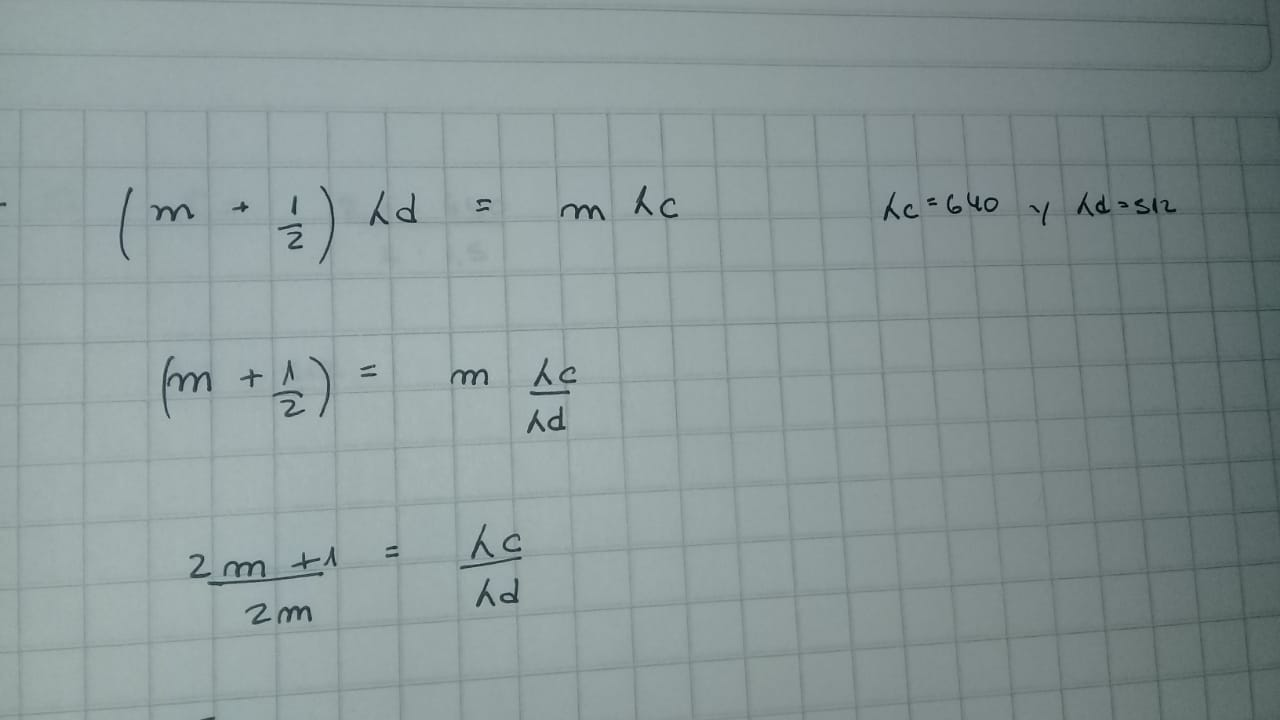 (m + 1/2) λd = m λc λc = 640 y λd = 512
(m + 1/2) = m λc/λd
2m + 1/2m = λc/λd